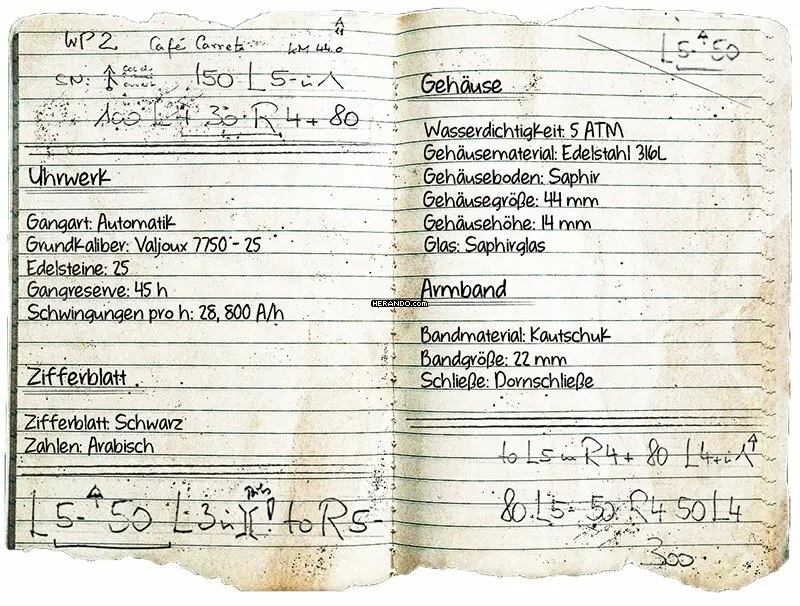 WP2 Café Carreta KM 44.0
SN: 150 L5-
100 L4 30 R4+ 80
Uhrwerk
Gangart: Automatik
Grundkaliber: Valjoux 7750 - 25
Edelsteine: 25
Gangreserve: 45 h
Schwingungen pro h: 28, 800 A/h
Zifferblatt
Zifferblatt: Schwarz
Zahlen: Arabisch
L5- 50 L3 to R5-
L5- 50
Gehäuse
Wasserdichtigkeit: 5 ATM
Gehäusematerial: Edelstahl 316L
Gehäuseboden: Saphir
Gehäusegröße: 44 mm
Gehäusehöhe: 14 mm
Glas: Saphirglas
HERANDO.com
Armband
Bandmaterial: Kautschuk
Bandgröße: 22 mm
Schließe: Dornschließe
to L5 R4+ 80 L4+
80 L5- 50 R4 50 L4
300